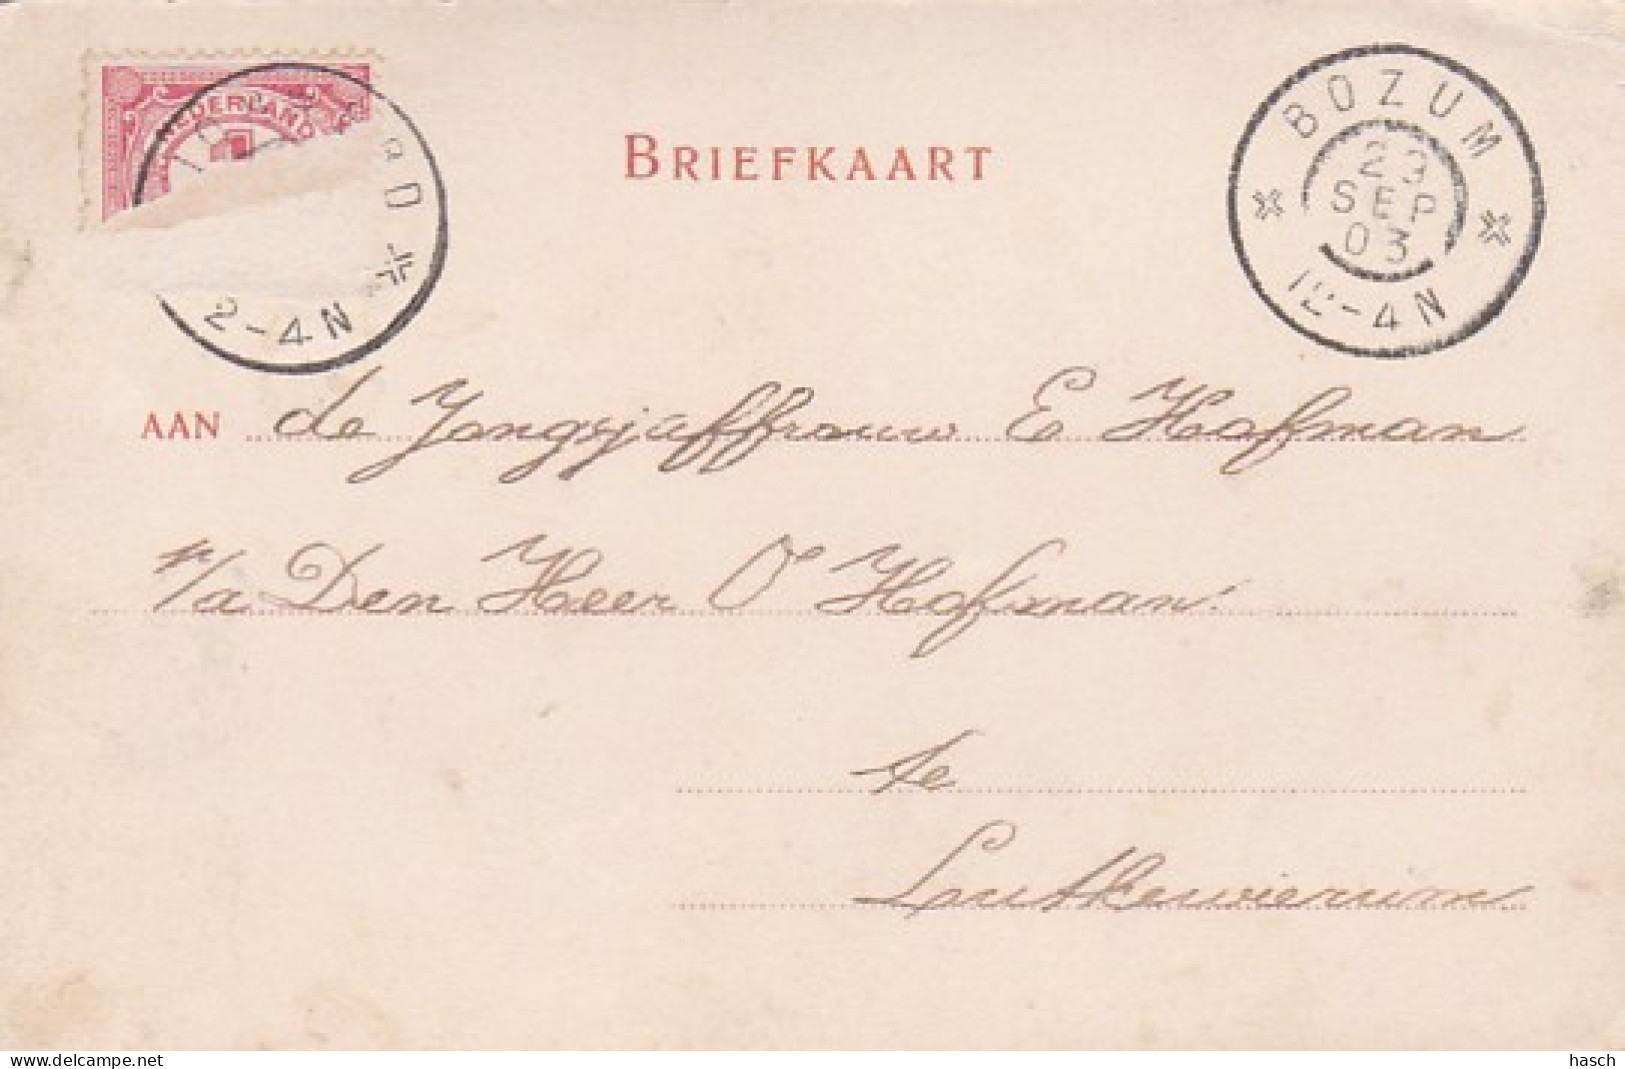 NEDERLAND
2-4N
BRIEFKAART
BOZUM
29
SEP
03
12-4N
AAN de Jongejuffrouw E Hofman
p/a Den Heer O Hofman.
te
Lutkewierum
delcampe.net
hasch